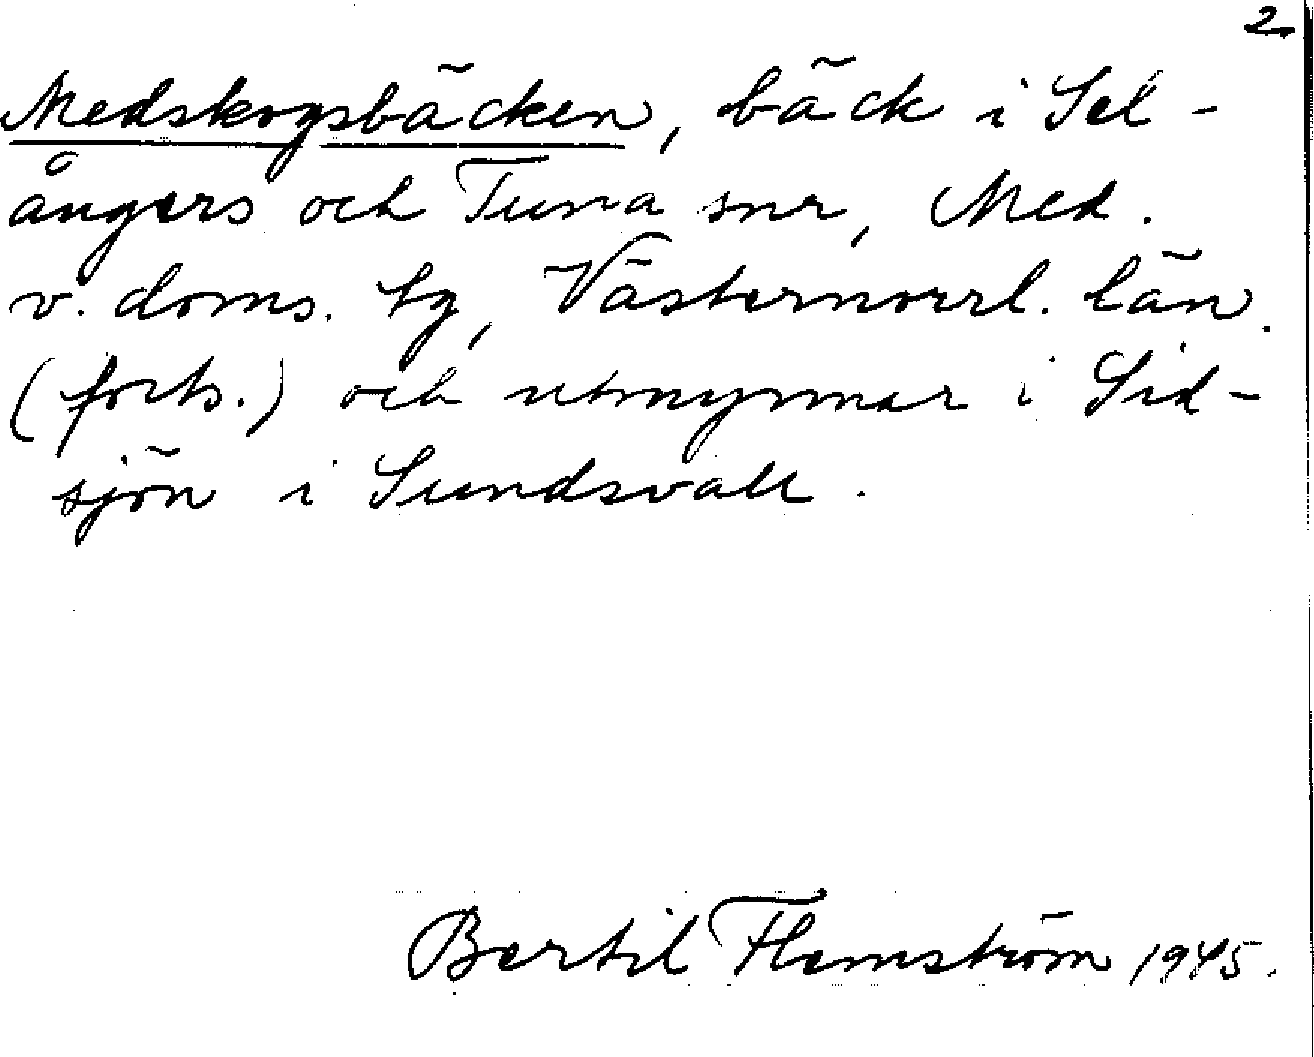 2.
Medskogsbäcken, bäck i Sel-
ångers och Tuna snr, Med.
v. doms. tg, Västernorrl. län.
(forts.) och utmynnar i Sid-
sjön i Sundsvall.
Bertil Flemström 1945.